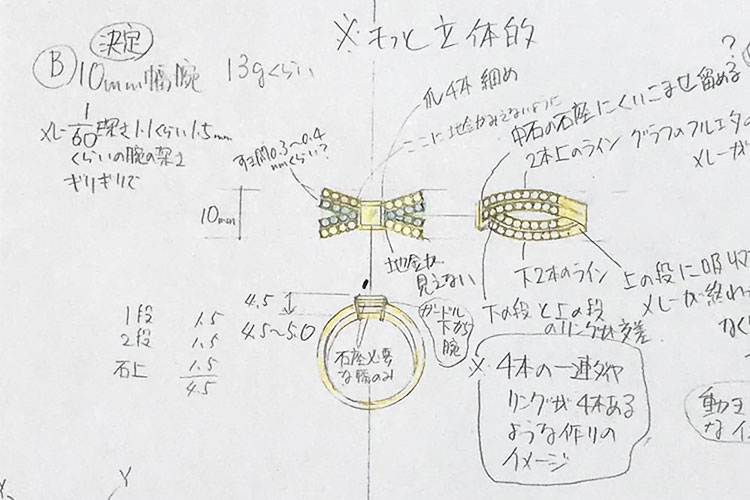 決定
※もっと立体的
?
B 10mm幅腕 13gくらい
爪4本 細め
ここに地金がみえないように
中石の石座にくいこませ留める
メレー1/60 深さ1.1くらい1.5mm
くらいの腕の梁さ
ギリギリで
すき間0.3〜0.4
mmくらい?
2本上のライン グラフのフルエタの
メレーが
10mm
地金が
見えない
下2本のライン
上の段に吸収
メレーが終わ
なく
下の段と上の段
のリングが交差
4.5
4.5〜5.0
ガードル
下から
腕
石座必要
な幅のみ
1段 1.5
2段 1.5
石上 1.5
4.5
※4本の一連ダイヤ
リングが4本ある
ような作りの
イメージ
動
なイ
X
Y